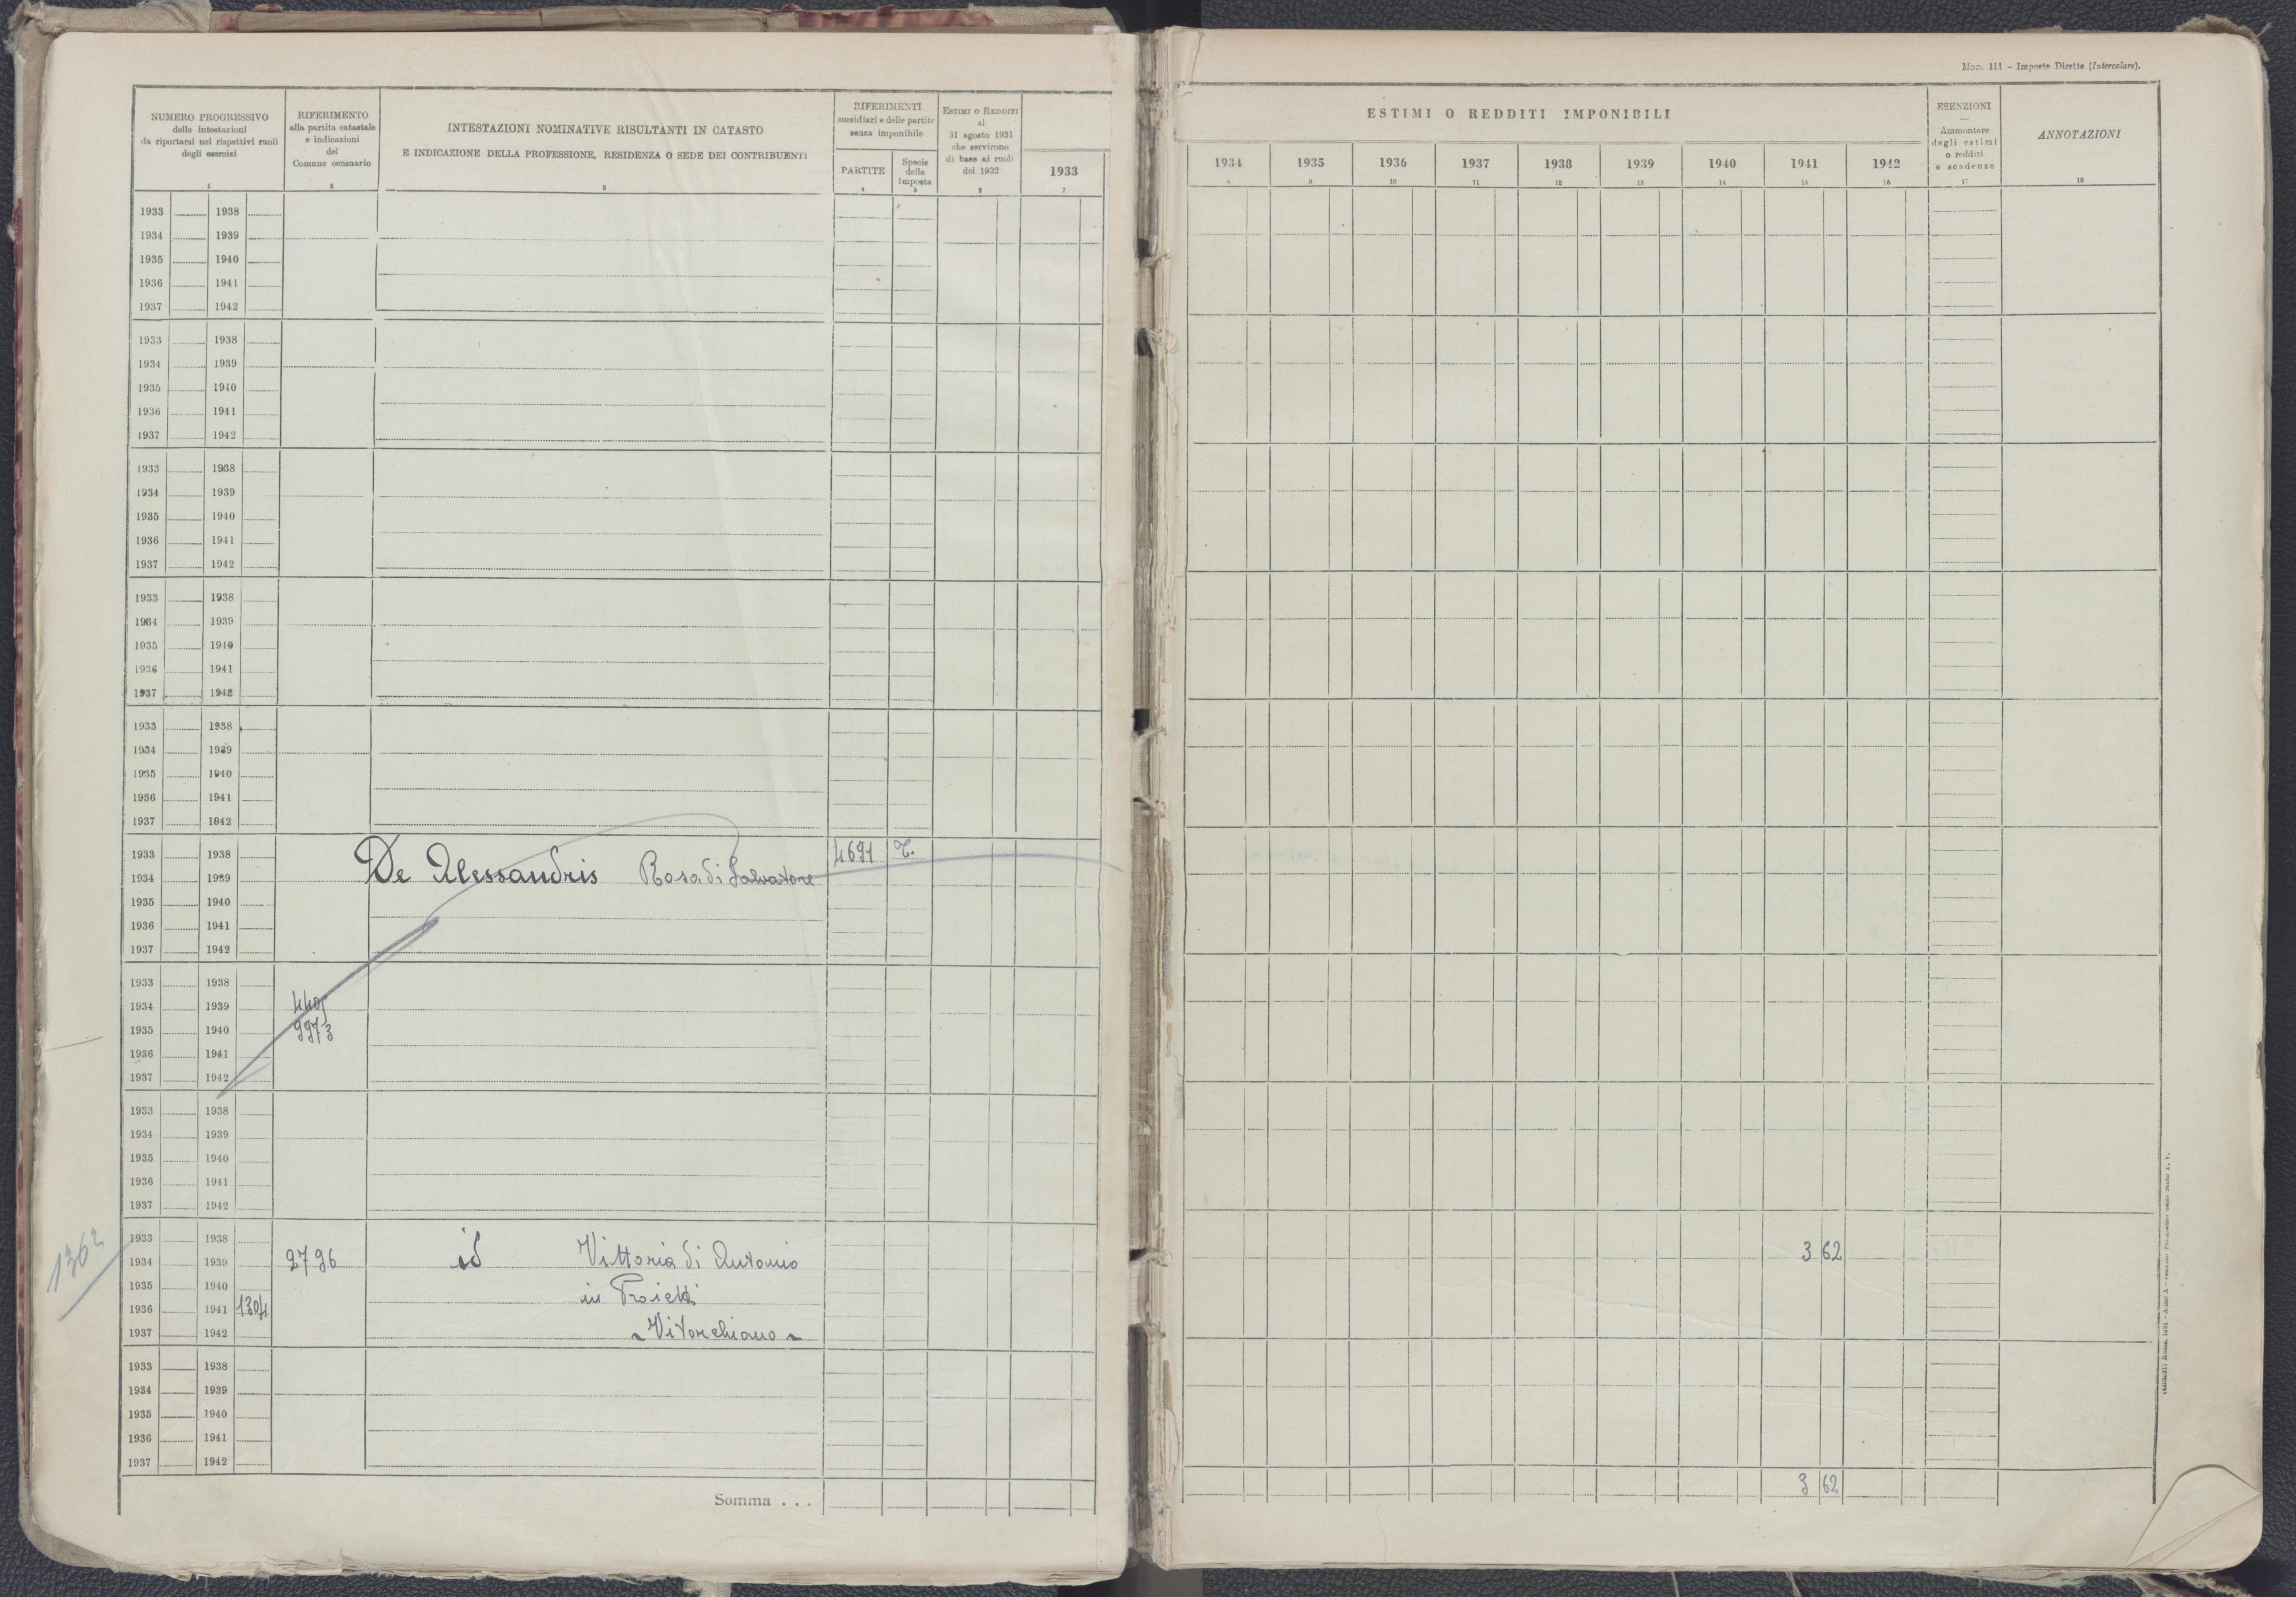 Mod. 111 - Imposte Dirette (Intercalare).
NUMERO PROGRESSIVO
delle intestazioni
da riportarsi nei rispettivi ruoli
degli esercizi
1
RIFERIMENTO
alla partita catastale
e indicazioni
del
Comune censuario
2
INTESTAZIONI NOMINATIVE RISULTANTI IN CATASTO
E INDICAZIONE DELLA PROFESSIONE, RESIDENZA O SEDE DEI CONTRIBUENTI
3
RIFERIMENTI
sussidiari e delle partite
senza imponibile
PARTITE
4
Specie
della
Imposta
5
ESTIMI O REDDITI
al
31 agosto 1931
che servirono
di base ai ruoli
del 1932
6
1933
7
ESTIMI O REDDITI IMPONIBILI
1934 1935 1936 1937 1938 1939 1940 1941 1942
8 9 10 11 12 13 14 15 16
ESENZIONI
Ammontare
degli estimi
o redditi
e scadenze
17
ANNOTAZIONI
18
1933 1938
1934 1939
1935 1940
1936 1941
1937 1942
1933 1938
1934 1939
1935 1940
1936 1941
1937 1942
1933 1938
1934 1939
1935 1940
1936 1941
1937 1942
1933 1938
1934 1939
1935 1940
1936 1941
1937 1942
1933 1938
1934 1939
1935 1940
1936 1941
1937 1942
1933 1938 4691 T.
1934 1939 De Alessandris Rosa di Salvatore
1935 1940
1936 1941
1937 1942
1933 1938
1934 1939
1935 1940 9973
1936 1941
1937 1942
1933 1938
1934 1939
1935 1940
1936 1941
1937 1942
1933 1938
1934 1939 2796 id Vittoria di Antonio 3 62
1935 1940
1936 1941 1304 in Proietti
1937 1942 Vitorchiano
1933 1938
1934 1939
1935 1940
1936 1941
1937 1942
Somma . . . 3 62